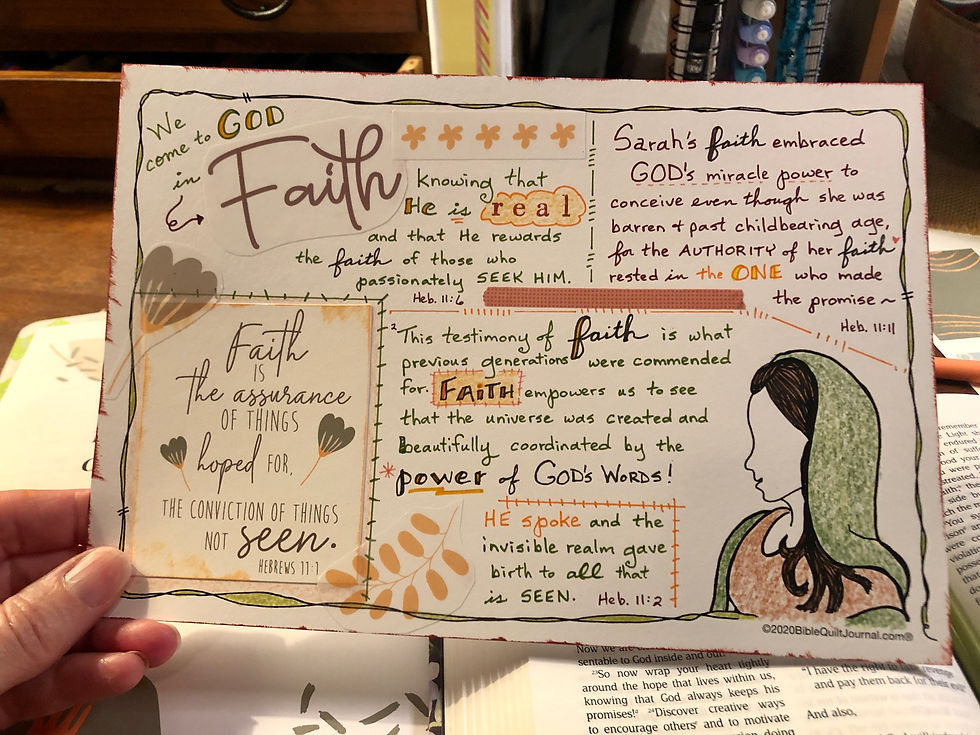 We
come to GOD
in
Faith
knowing that
He is real
and that He rewards
the faith of those who
passionately SEEK HIM.
Heb. 11:6
Sarah's faith embraced
GOD's miracle power to
conceive even though she was
barren + past childbearing age,
for the AUTHORITY of her faith
rested in the ONE who made
the promise ~
Heb. 11:11
Faith
IS
the assurance
OF THINGS
hoped FOR,
THE CONVICTION OF THINGS
NOT seen.
HEBREWS 11:1
2 This testimony of faith is what
previous generations were commended
for. FAITH empowers us to see
that the universe was created and
beautifully coordinated by the
*power of GOD'S WORDS!
HE spoke and the
invisible realm gave
birth to all that
is SEEN. Heb. 11:2
©2020BibleQuiltJournal.com®
Now we are
sentable to God inside and out.
23"So now wrap your heart tightly
around the hope that lives within us,
knowing that God always keeps his
promises! 24"Discover creative ways
to encourage others and to motivate
"I have the right to
and pay them back for their
And also,
remember